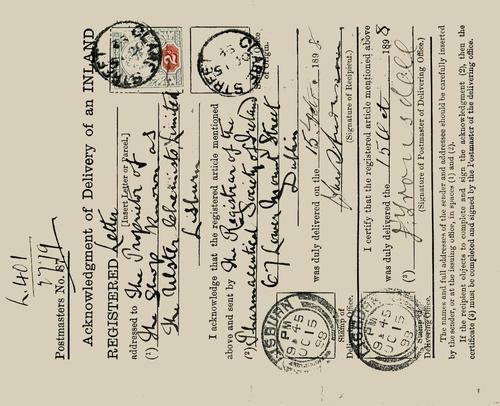 L.401
0779
Postmasters No. 87
Acknowledgment of Delivery of an INLAND
REGISTERED Letter
[Insert Letter or Parcel.]
addressed to The Proprietor of
(1) The Shop Known as
The Ulster Chemists Limited
Lisburn
I acknowledge that the registered article mentioned
above and sent by The Registrar of the
(2) Pharmaceutical Society of Ireland
67 Lower Mount Street
Dublin
was duly delivered on the 15 Oct. 1898
(Signature of Recipient.)
I certify that the registered article mentioned above
was duly delivered the 15 Oct 1898
(3)
(Signature of Postmaster of Delivering Office.)
The names and full addresses of the sender and addressee should be carefully inserted
by the sender, or at the issuing office, in spaces (1) and (2).
If the recipient objects to complete and sign the acknowledgment (2), then the
certificate (3) must be completed and signed by the Postmaster of the delivering office.
CLARE STREET
2
CLARE STREET
of Origin.
LISBURN
9 45 PM
OC 15
98
Stamp of
Delivering Office.
LISBURN
9 45 PM
OC 15
98
Stamp of
Delivering Office.